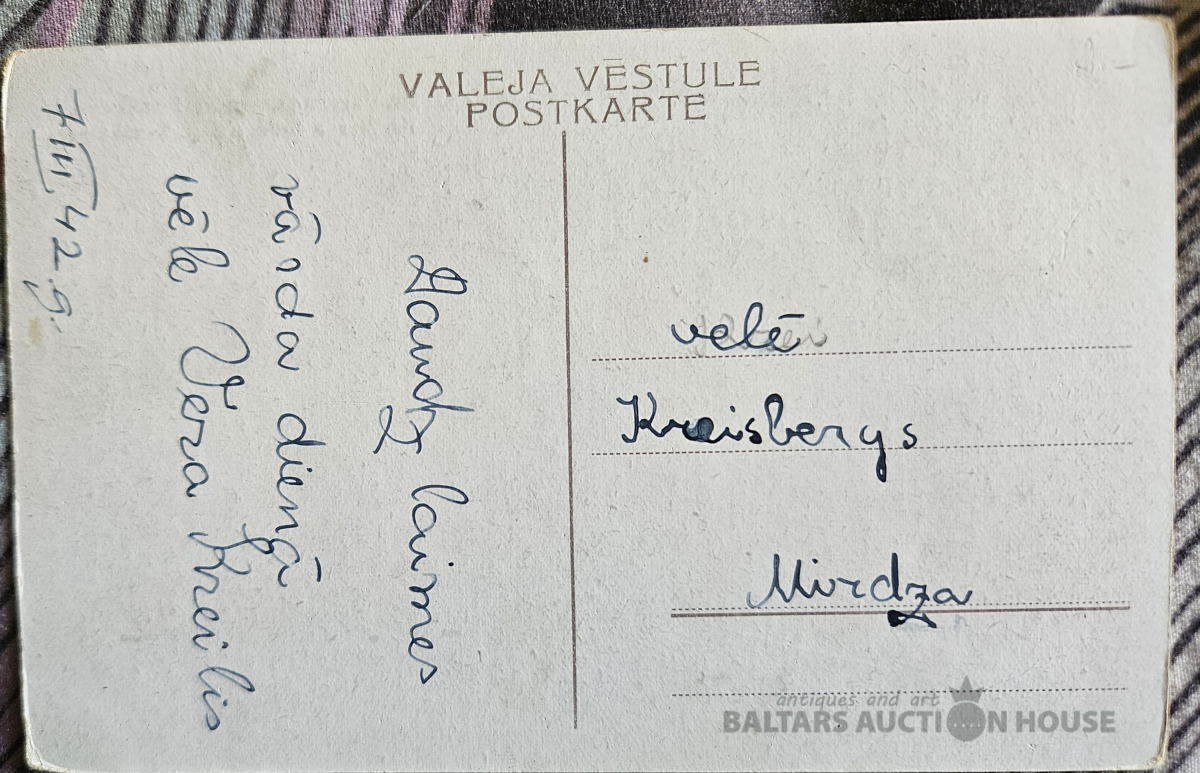 VALEJA VĒSTULE
POSTKARTE
Daudz laimes
vārda dienā
vēlē Vera Kreilis
7 III 42.g.
velē
Kreisbergs
Mirdza
antiques and art
BALTARS AUCTION HOUSE